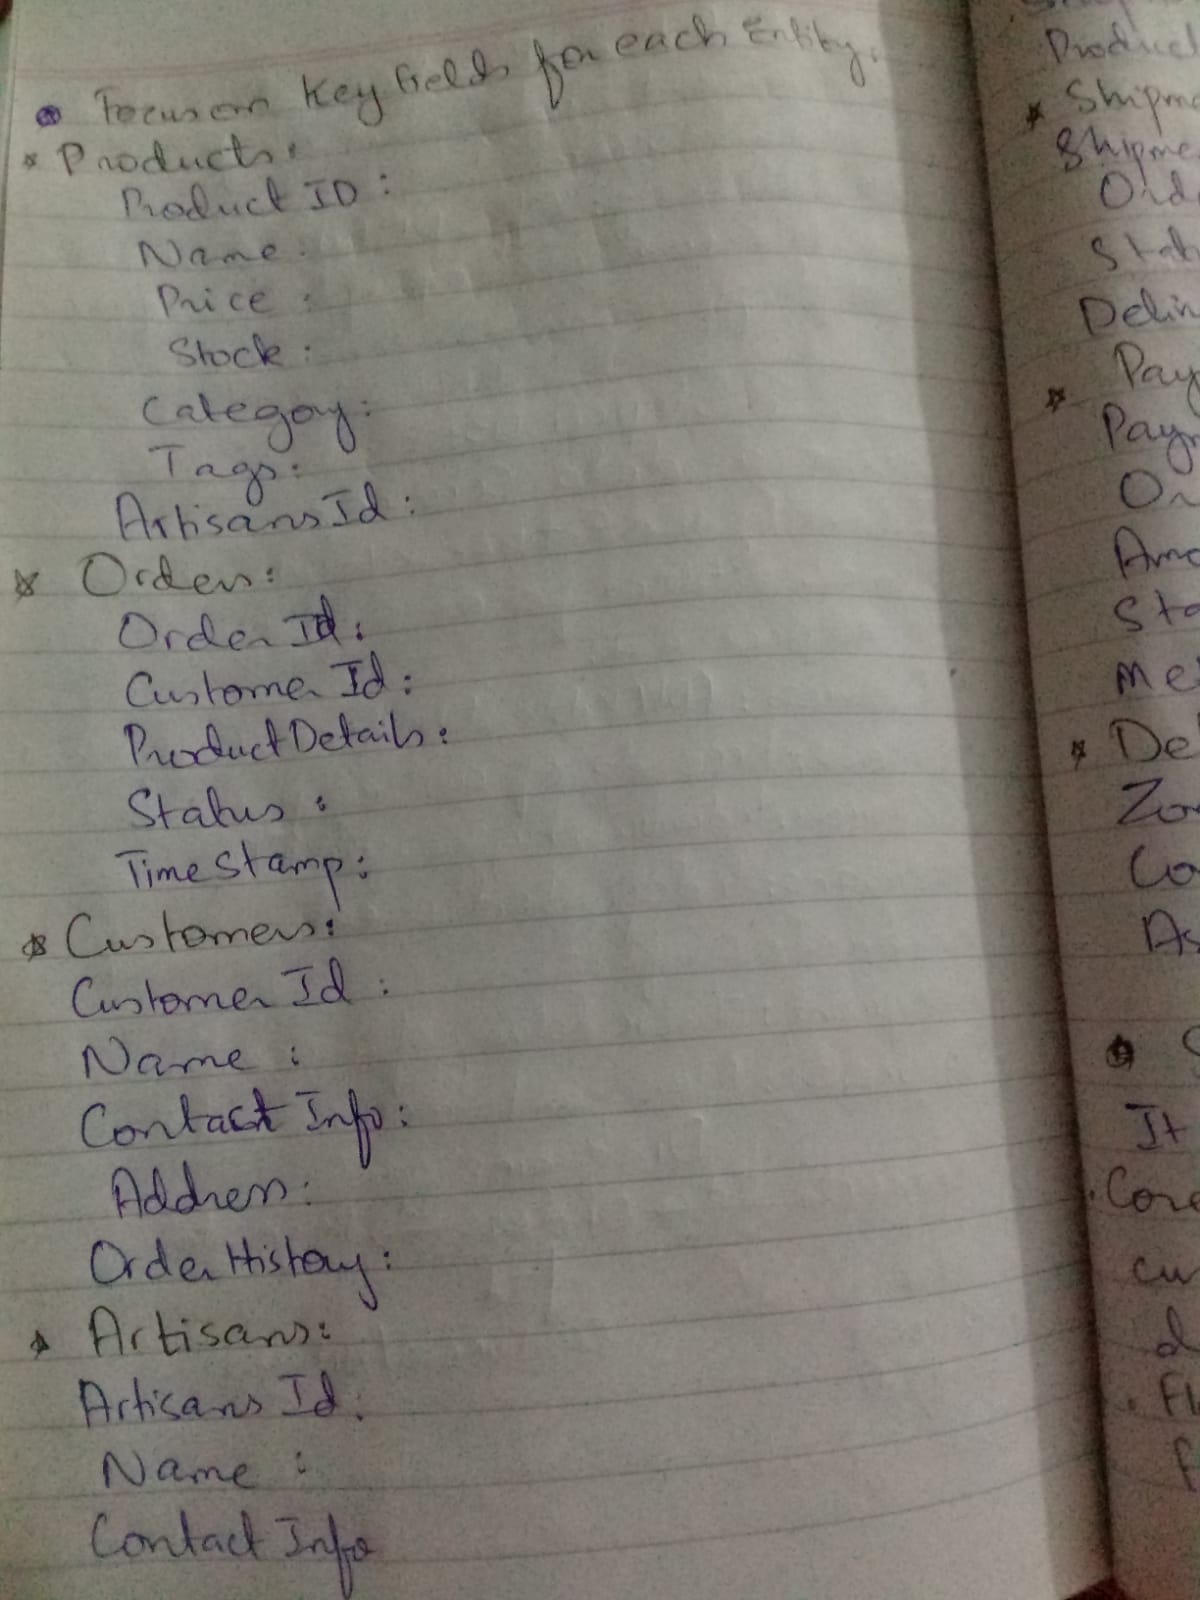 Focus on Key fields for each Entity.
* Products:
Product ID :
Name :
Price :
Stock :
Category:
Tags:
Artisans Id :
* Orders:
Order Id :
Customer Id :
Product Details :
Status :
Time Stamp :
* Customers:
Customer Id :
Name :
Contact Info :
Address :
Order History :
* Artisans:
Artisans Id :
Name :
Contact Info
Product
* Shipme
Shipme
Orde
Stat
Deliv
* Pay
Paym
Or
Amo
Sta
Me
* Del
Zo
Co
As
It
Core
cu
d
Fl